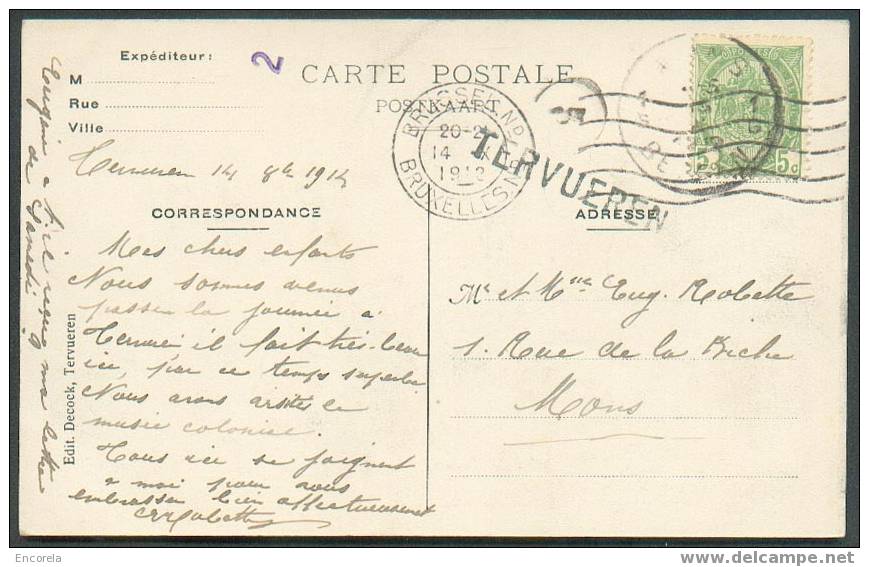 Expéditeur:
M
Rue
Ville
2
CARTE POSTALE
POSTKAART
BRUSSEL Nd
20-2
14
1912
BRUXELLES N
TERVUEREN
5
5c 5c
Tervueren 14 8bre 1912
CORRESPONDANCE
ADRESSE
Mes chers enfants
Nous sommes venus
passer la journée à
Tervueren il fait très-beau
ici, par ce temps superbe
Nous avons visité le
musée colonial.
Tous ici se joignent
à moi pour vous
embrasser bien affectueusement
Eugénie a-t-elle reçu ma lettre
de Samedi
Mr et Mme Eug. Robette
1. Rue de la Biche
Mons
Edit. Decock, Tervueren
Encorela
DELCAMPE.NET